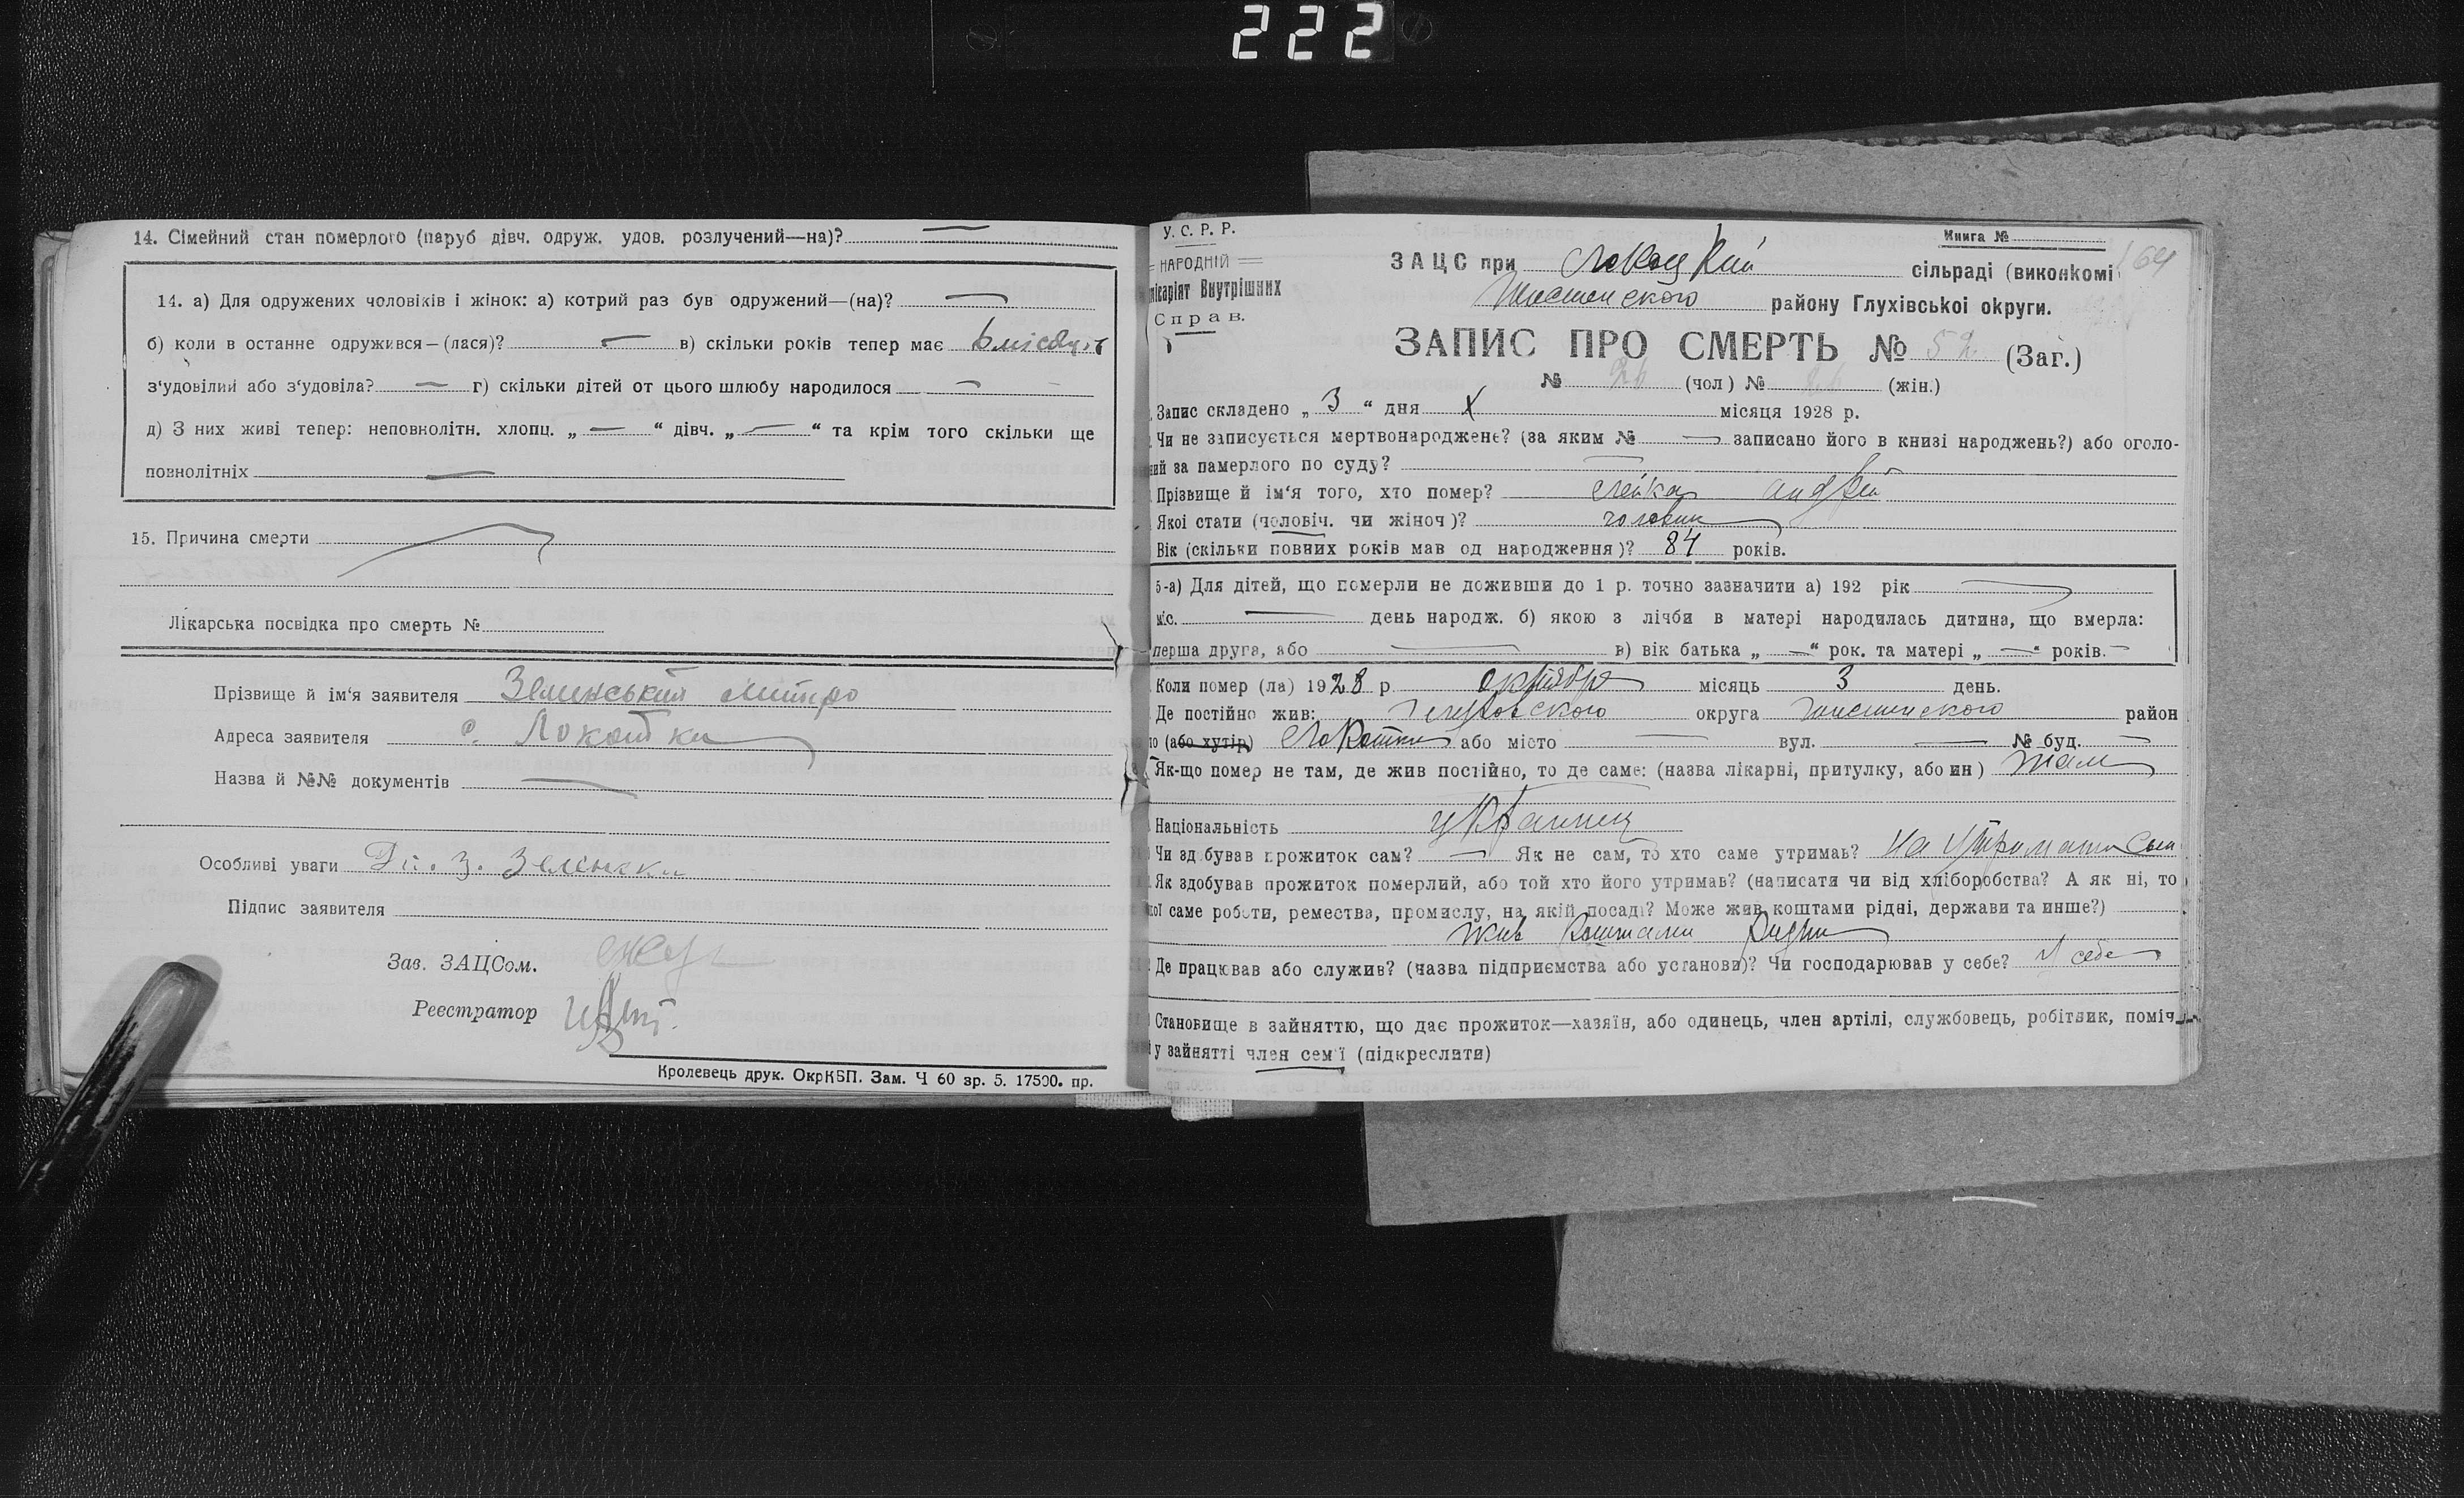 222
14. Сімейний стан померлого (паруб дівч. одруж. удов. розлучений—на)? —
14. а) Для одружених чоловіків і жінок: а) котрий раз був одружений—(на)? —
б) коли в останне одружився—(лася)? — в) скільки років тепер має
з'удовілий або з'удовіла? — г) скільки дітей от цього шлюбу народилося —
д) З них живі тепер: неповнолітн. хлопц. „ — “ дівч. „ — “ та крім того скільки ще
повнолітніх —
15. Причина смерти
Лікарська посвідка про смерть №
Прізвище й ім'я заявителя Зелинський Митро
Адреса заявителя с. Локотки
Назва й №№ документів —
Особливі уваги
Підпис заявителя
Зав. ЗАЦСом.
Реєстратор
Кролевець друк. ОкрКБП. Зам. Ч 60 зр. 5. 17500. пр.
У. С. Р. Р.
НАРОДНІЙ
Внутрішних
Справ.
Книга №
ЗАЦС при Локоцкий сільраді (виконкомі
64
району Глухівської округи.
ЗАПИС ПРО СМЕРТЬ № 52 (Заг.)
№ 26 (чол) № (жін.)
Запис складено „ 3 “ дня X місяця 1928 р.
Чи не записується мертвонароджене? (за яким № — записано його в книзі народжень?) або оголо-
за памерлого по суду? —
Прізвище й ім'я того, хто помер? Лейка Андрей
Якої стати (чоловіч. чи жіноч)? чоловик
Вік (скільки повних років мав од народження)? 84 років.
5-а) Для дітей, що померли не доживши до 1 р. точно зазначити а) 192 рік —
міс. — день народж. б) якою з лічби в матері народилась дитина, що вмерла:
перша друга, або — в) вік батька „ — “ рок. та матері „ — “ років. —
Коли помер (ла) 1928 р октября місяць 3 день.
Де постійно жив: Глуховского округа район
(або хутір) Локотки або місто — вул. — № буд. —
Як-що помер не там, де жив постійно, то де саме: (назва лікарні, притулку, або ин) там
Національність украинец
Чи здобував прожиток сам? — Як не сам, то хто саме утримав?
Як здобував прожиток померлий, або той хто його утримав? (написати чи від хліборобства? А як ні, то
саме роботи, ремества, промислу, на якій посаді? Може жив коштами рідні, держави та инше?)
жив коштами ридни
Де працював або служив? (назва підприємства або установи)? Чи господарював у себе? у себе
Становище в зайняттю, що дає прожиток—хазяїн, або одинець, член артілі, службовець, робітвик, поміч
у зайнятті член сем'ї (підкреслити)